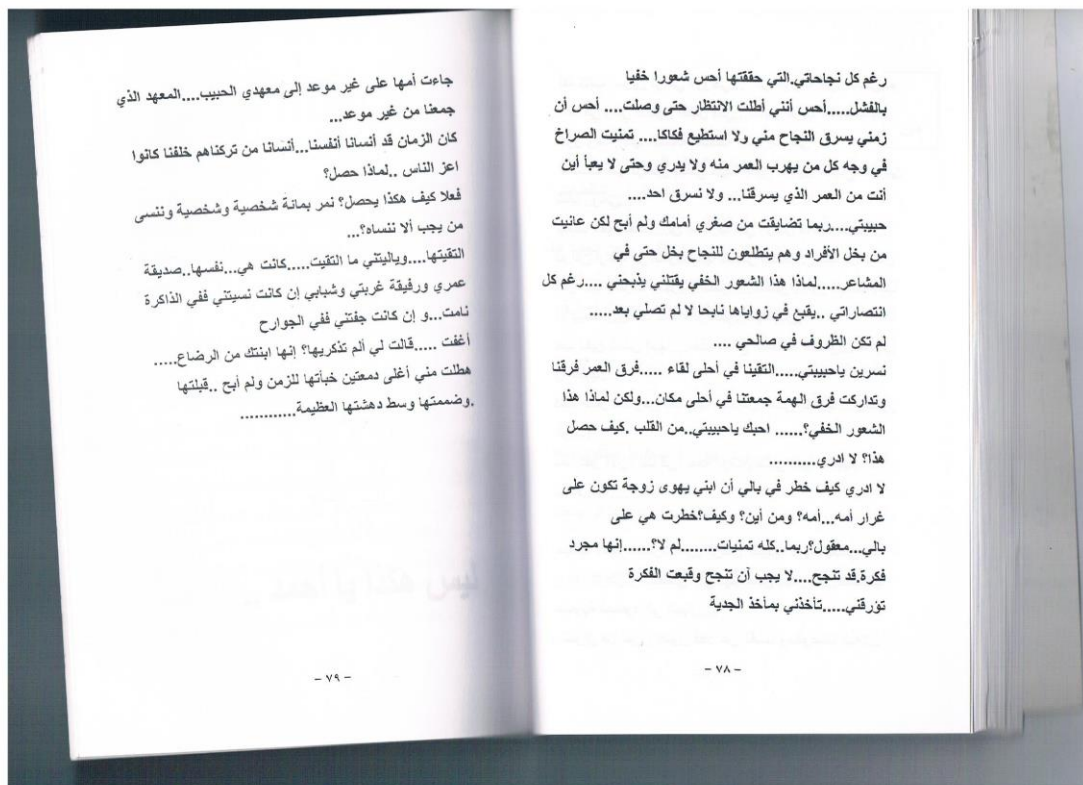 رغم كل نجاحاتي.التي حققتها أحس شعورا خفيا
بالفشل.....أحس أنني أطلت الانتظار حتى وصلت.... أحس أن
زمني يسرق النجاح مني ولا استطيع فكاكا.... تمنيت الصراخ
في وجه كل من يهرب العمر منه ولا يدري وحتى لا يعبأ أين
أنت من العمر الذي يسرقنا... ولا نسرق احد....
حبيبتي....ربما تضايقت من صغري أمامك ولم أبح لكن عانيت
من بخل الأفراد وهم يتطلعون للنجاح بخل حتى في
المشاعر.....لماذا هذا الشعور الخفي يقتلني يذبحني ....رغم كل
انتصاراتي ..يقبع في زواياها نابحا لا لم تصلي بعد.....
لم تكن الظروف في صالحي ....
نسرين ياحبيبتي.....التقينا في أحلى لقاء .....فرق العمر فرقنا
وتداركت فرق الهمة جمعتنا في أحلى مكان...ولكن لماذا هذا
الشعور الخفي؟...... احبك ياحبيبتي..من القلب .كيف حصل
هذا؟ لا ادري..........
لا ادري كيف خطر في بالي أن ابني يهوى زوجة تكون على
غرار أمه...أمه؟ ومن أين؟ وكيف؟خطرت هي على
بالي...معقول؟ربما..كله تمنيات........لم لا؟......إنها مجرد
فكرة.قد تنجح....لا يجب أن تنجح وقبعت الفكرة
تؤرقني.....تأخذني بمأخذ الجدية
- ٧٨ -
جاءت أمها على غير موعد إلى معهدي الحبيب....المعهد الذي
جمعنا من غير موعد...
كان الزمان قد أنسانا أنفسنا...أنسانا من تركناهم خلفنا كانوا
اعز الناس ..لماذا حصل؟
فعلا كيف هكذا يحصل؟ نمر بمائة شخصية وشخصية وننسى
من يجب ألا ننساه؟...
التقيتها....وياليتني ما التقيت.....كانت هي...نفسها..صديقة
عمري ورفيقة غربتي وشبابي إن كانت نسيتني ففي الذاكرة
نامت...و إن كانت جفتني ففي الجوارح
أغفت .....قالت لي ألم تذكريها؟ إنها ابنتك من الرضاع.....
هطلت مني أغلى دمعتين خبأتها للزمن ولم أبح ..قبلتها
.وضممتها وسط دهشتها العظيمة............
- ٧٩ -